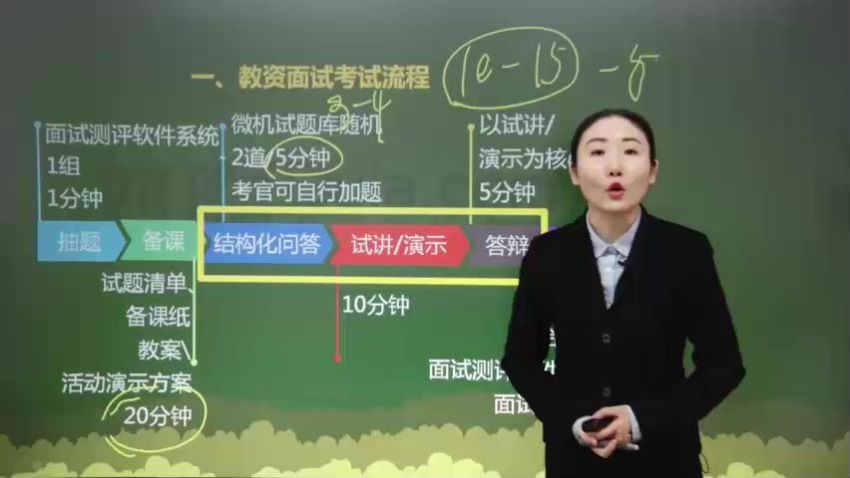 一、教资面试考试流程
10-15
3-4
面试测评软件系统
1组
1分钟
微机试题库随机
2道/5分钟
考官可自行加题
以试讲/
演示为核
5分钟
抽题
备课
结构化问答
试讲/演示
答辩
试题清单、
备课纸
教案\
活动演示方案
20分钟
10分钟
面试测评
面试